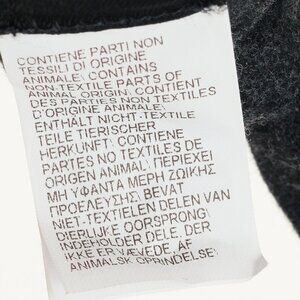 CONTIENE PARTI NON
TESSILI DI ORIGINE
ANIMALE; CONTAINS
NON-TEXTILE PARTS OF
ANIMAL ORIGIN; CONTIENT
DES PARTIES NON TEXTILES
D'ORIGINE ANIMALE;
ENTHÄLT NICHT-TEXTILE
TEILE TIERISCHER
HERKUNFT; CONTIENE
PARTES NO TEXTILES DE
ORIGEN ANIMAL; ΠΕΡΙΕΧΕΙ
ΜΗ ΥΦΑΝΤΑ ΜΕΡΗ ΖΩΙΚΗΣ
ΠΡΟΕΛΕΥΣΗΣ; BEVAT
NIET-TEXTIELEN DELEN VAN
DIERLIJKE OORSPRONG;
INDEHOLDER DELE, DER
IKKE ER VÆVEDE, AF
ANIMALSK OPRINDELSE;